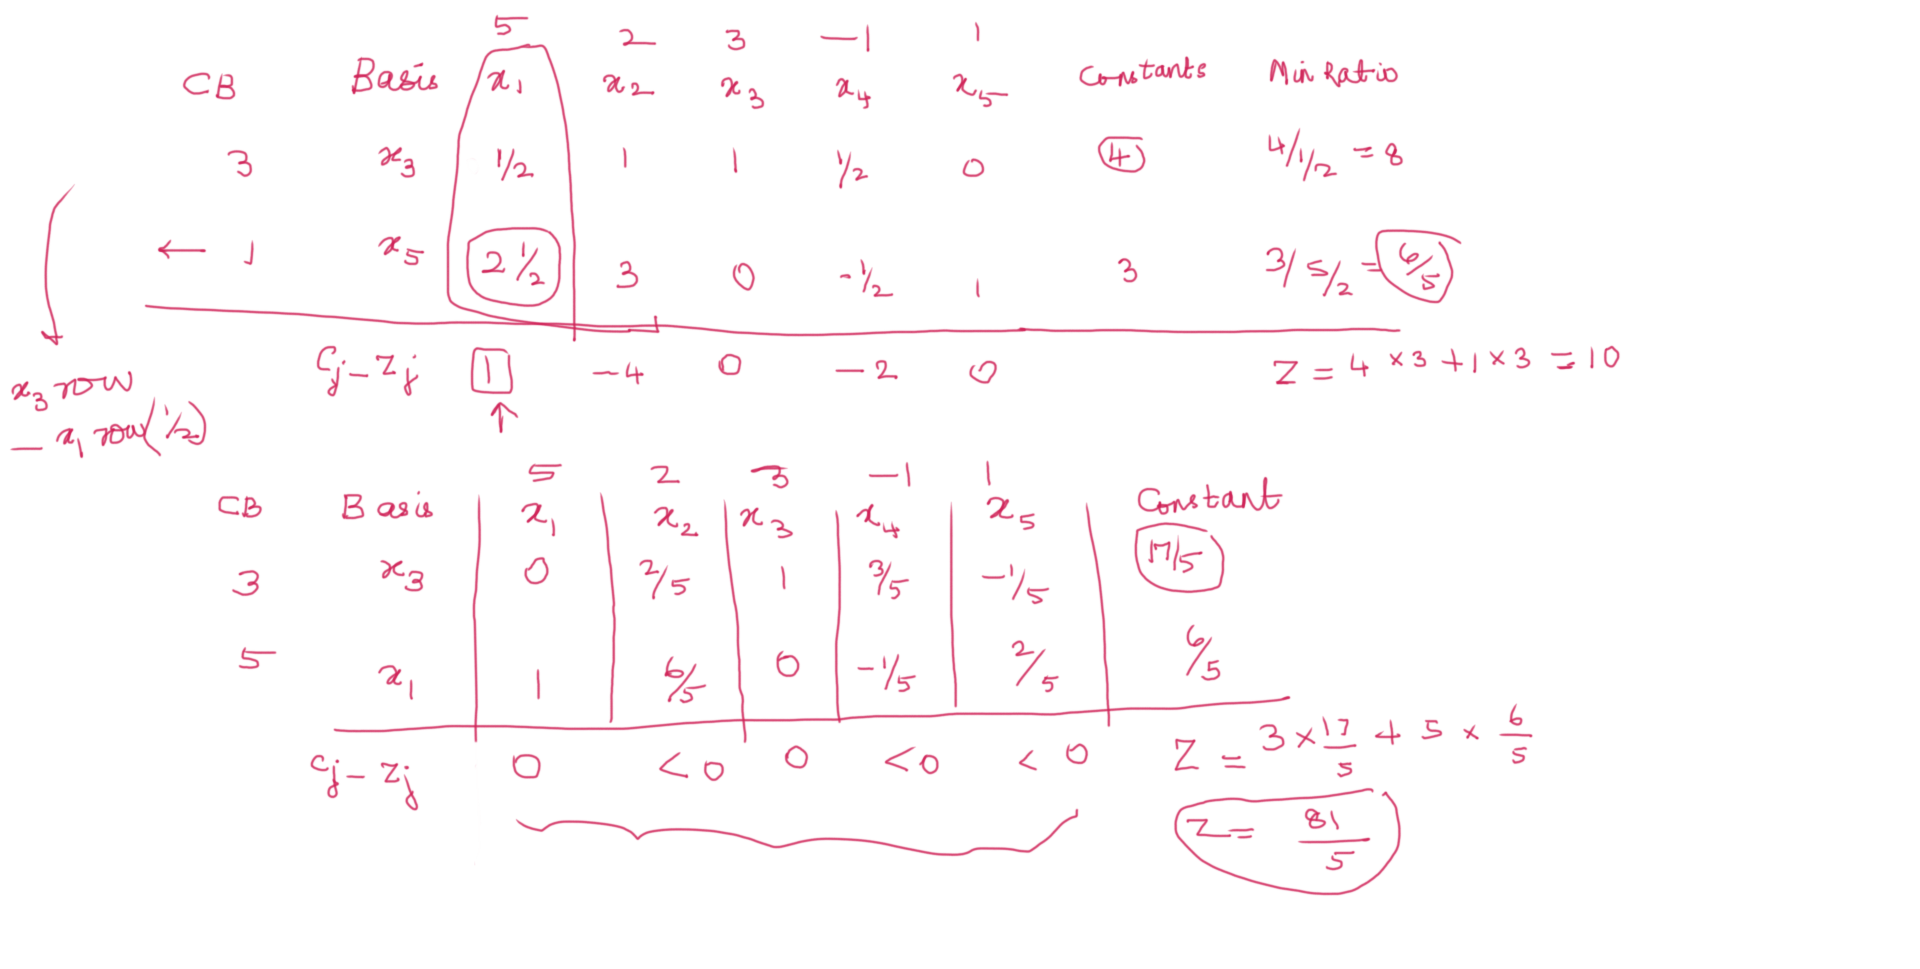 5 2 3 -1 1
CB Basis x₁ x₂ x₃ x₄ x₅ Constants Min Ratio
3 x₃ 1/2 1 1 1/2 0 4 4/1/2 = 8
← 1 x₅ 2 1/2 3 0 -1/2 1 3 3/5/2 = 6/5
Cj-Zj 1 -4 0 -2 0 Z = 4 × 3 + 1 × 3 = 10
↑
x₃ row
- x₁ row (1/2)
5 2 3 -1 1
CB Basis x₁ x₂ x₃ x₄ x₅ Constant
3 x₃ 0 2/5 1 3/5 -1/5 17/5
5 x₁ 1 6/5 0 -1/5 2/5 6/5
Cj-Zj 0 <0 0 <0 <0 Z = 3 × 17/5 + 5 × 6/5
Z = 81/5